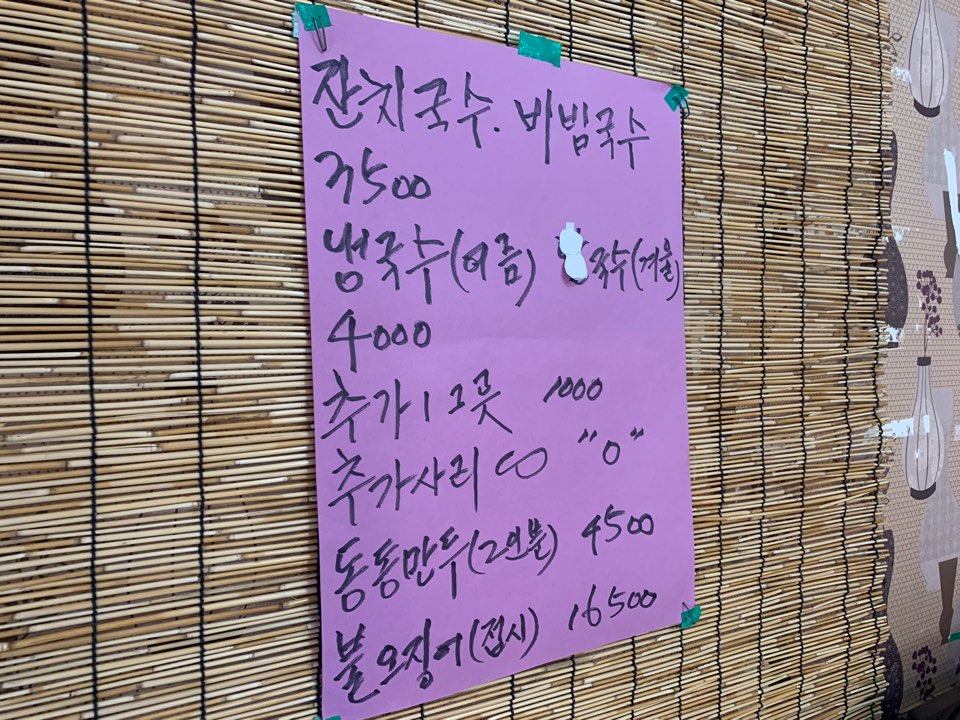 잔치국수. 비빔국수
3500
냉국수(여름) 국수(겨울)
4000
추가 1그릇 1000
추가사리 ∞ "0"
동동만두(2인분) 4500
불오징어(접시) 16500